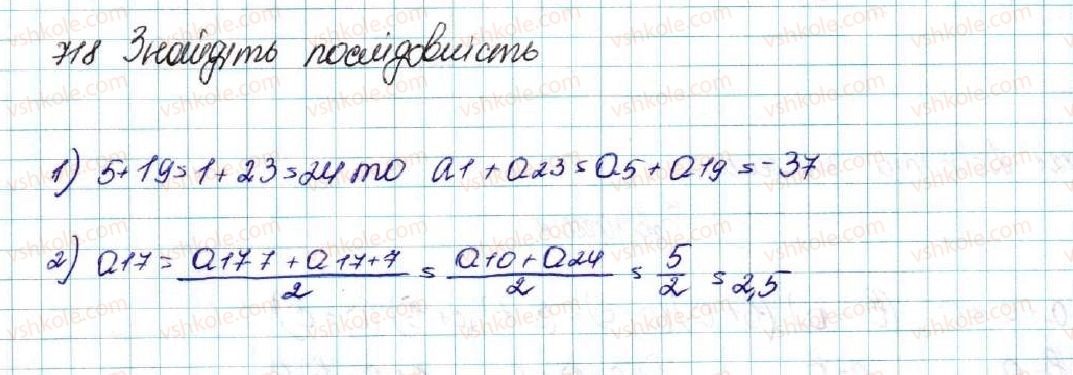 718 Знайдіть послідовність
1) 5+19=1+23=24 то a1+a23=a5+a19=-37
2) a17=\frac{a17 7+a17+7}{2}=\frac{a10+a24}{2}=\frac{5}{2}=2,5